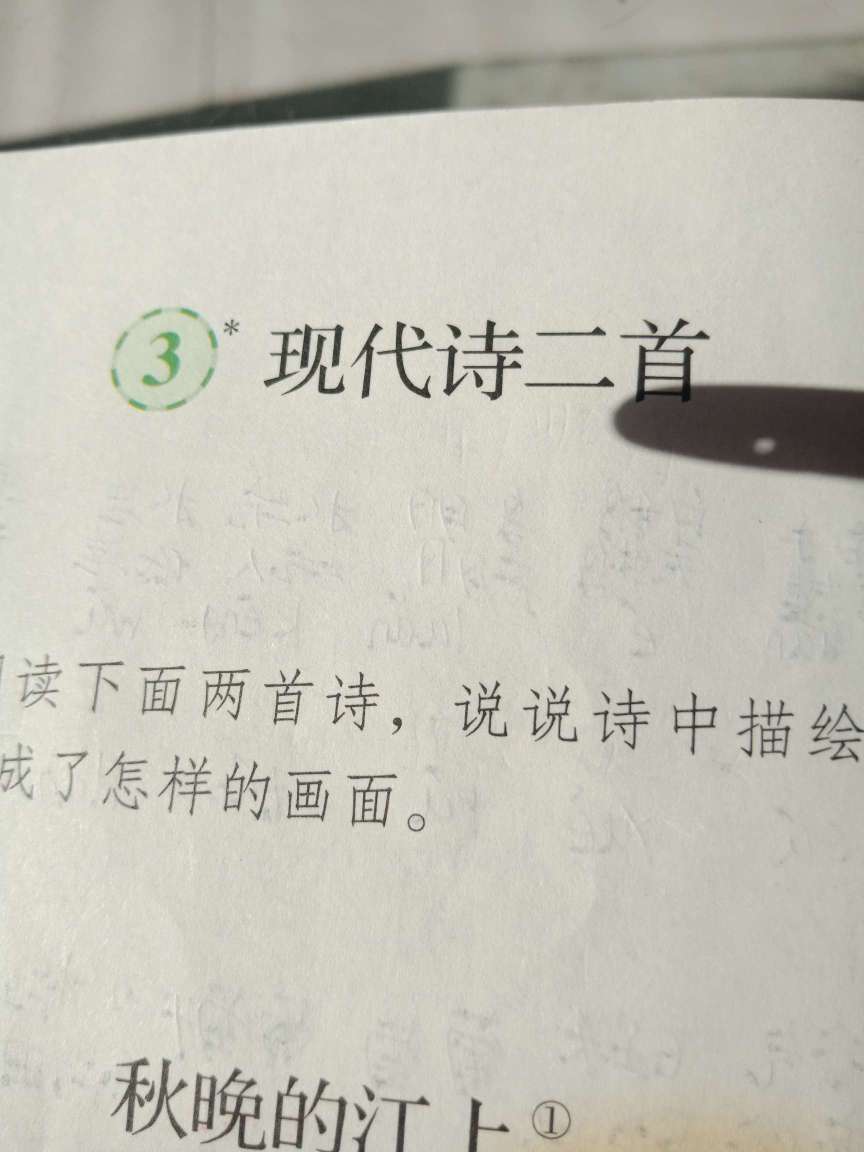 3* 现代诗二首
读下面两首诗，说说诗中描绘
成了怎样的画面。
秋晚的江上①